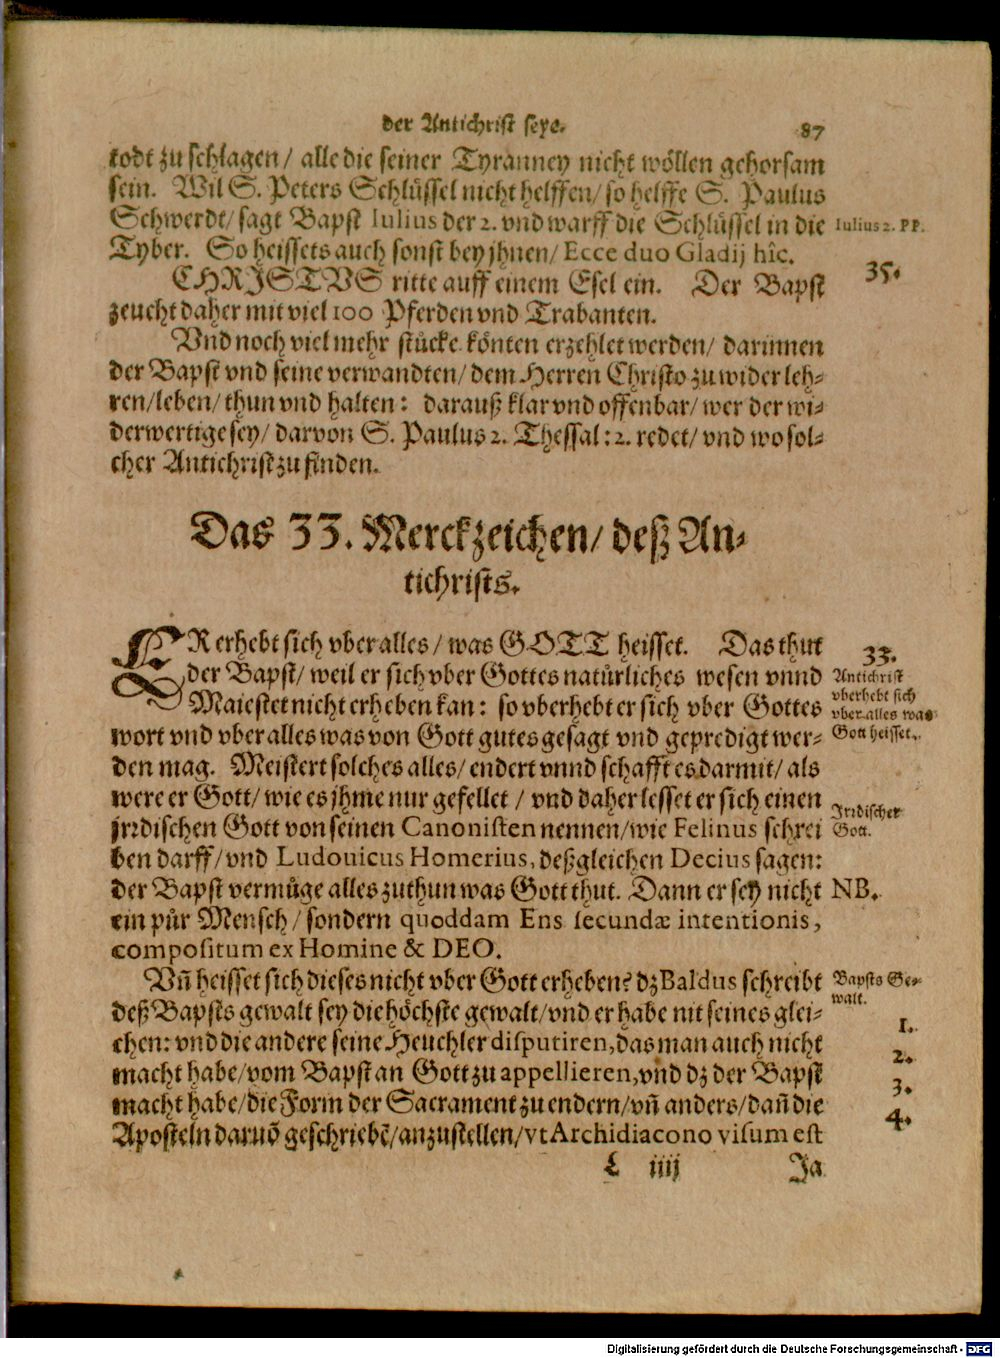 der Antichrist seye. 87
todt zu schlagen/ alle die seiner Tyranney nicht wöllen gehorsam
sein. Wil S. Peters Schlüssel nicht helffen/ so helffe S. Paulus
Schwerdt/ sagt Bapst Iulius der 2. vnd warff die Schlüssel in die
Iulius 2. PP.
Tyber. So heissets auch sonst bey jhnen/ Ecce duo Gladij hîc.
CHRISTVS ritte auff einem Esel ein. Der Bapst
35.
zeucht daher mit viel 100 Pferden vnd Trabanten.
Vnd noch viel mehr stücke könten erzehlet werden/ darinnen
der Bapst vnd seine verwandten/ dem Herren Christo zu wider leh-
ren/ leben/ thun vnd halten: darauß klar vnd offenbar/ wer der wi-
derwertige sey/ darvon S. Paulus 2. Thessal: 2. redet/ vnd wo sol-
cher Antichrist zu finden.
Das 33. Merckzeichen/ deß An-
tichrists.
ER erhebt sich vber alles/ was GOTT heisset. Das thut
der Bapst/ weil er sich vber Gottes natürliches wesen vnnd
Maiestet nicht erheben kan: so vberhebt er sich vber Gottes
33.
Antichrist
vberhebt sich
vber alles was
Gott heisset.
wort vnd vber alles was von Gott gutes gesagt vnd gepredigt wer-
den mag. Meistert solches alles/ endert vnnd schafft es darmit/ als
were er Gott/ wie es jhme nur gefellet/ vnd daher lesset er sich einen
jrrdischen Gott von seinen Canonisten nennen/ wie Felinus schrei
Jrrdischer
Gott.
ben darff/ vnd Ludouicus Homerius, deßgleichen Decius sagen:
der Bapst vermüge alles zuthun was Gott thut. Dann er sey nicht
NB.
ein pür Mensch/ sondern quoddam Ens secundæ intentionis,
compositum ex Homine & DEO.
Vñ heisset sich dieses nicht vber Gott erheben? dz Baldus schreibt
Bapsts Ge-
walt.
deß Bapsts gewalt sey die höchste gewalt/ vnd er habe nit seines glei-
1.
chen: vnd die andere seine Heuchler disputiren, das man auch nicht
2.
macht habe/ vom Bapst an Gott zu appellieren, vnd dz der Bapst
3.
macht habe/ die Form der Sacrament zu endern/ vñ anders/ dañ die
4.
Aposteln daruõ geschriebẽ/ anzustellen/ vt Archidiacono visum est
L iiij Ja
Digitalisierung gefördert durch die Deutsche Forschungsgemeinschaft - DFG